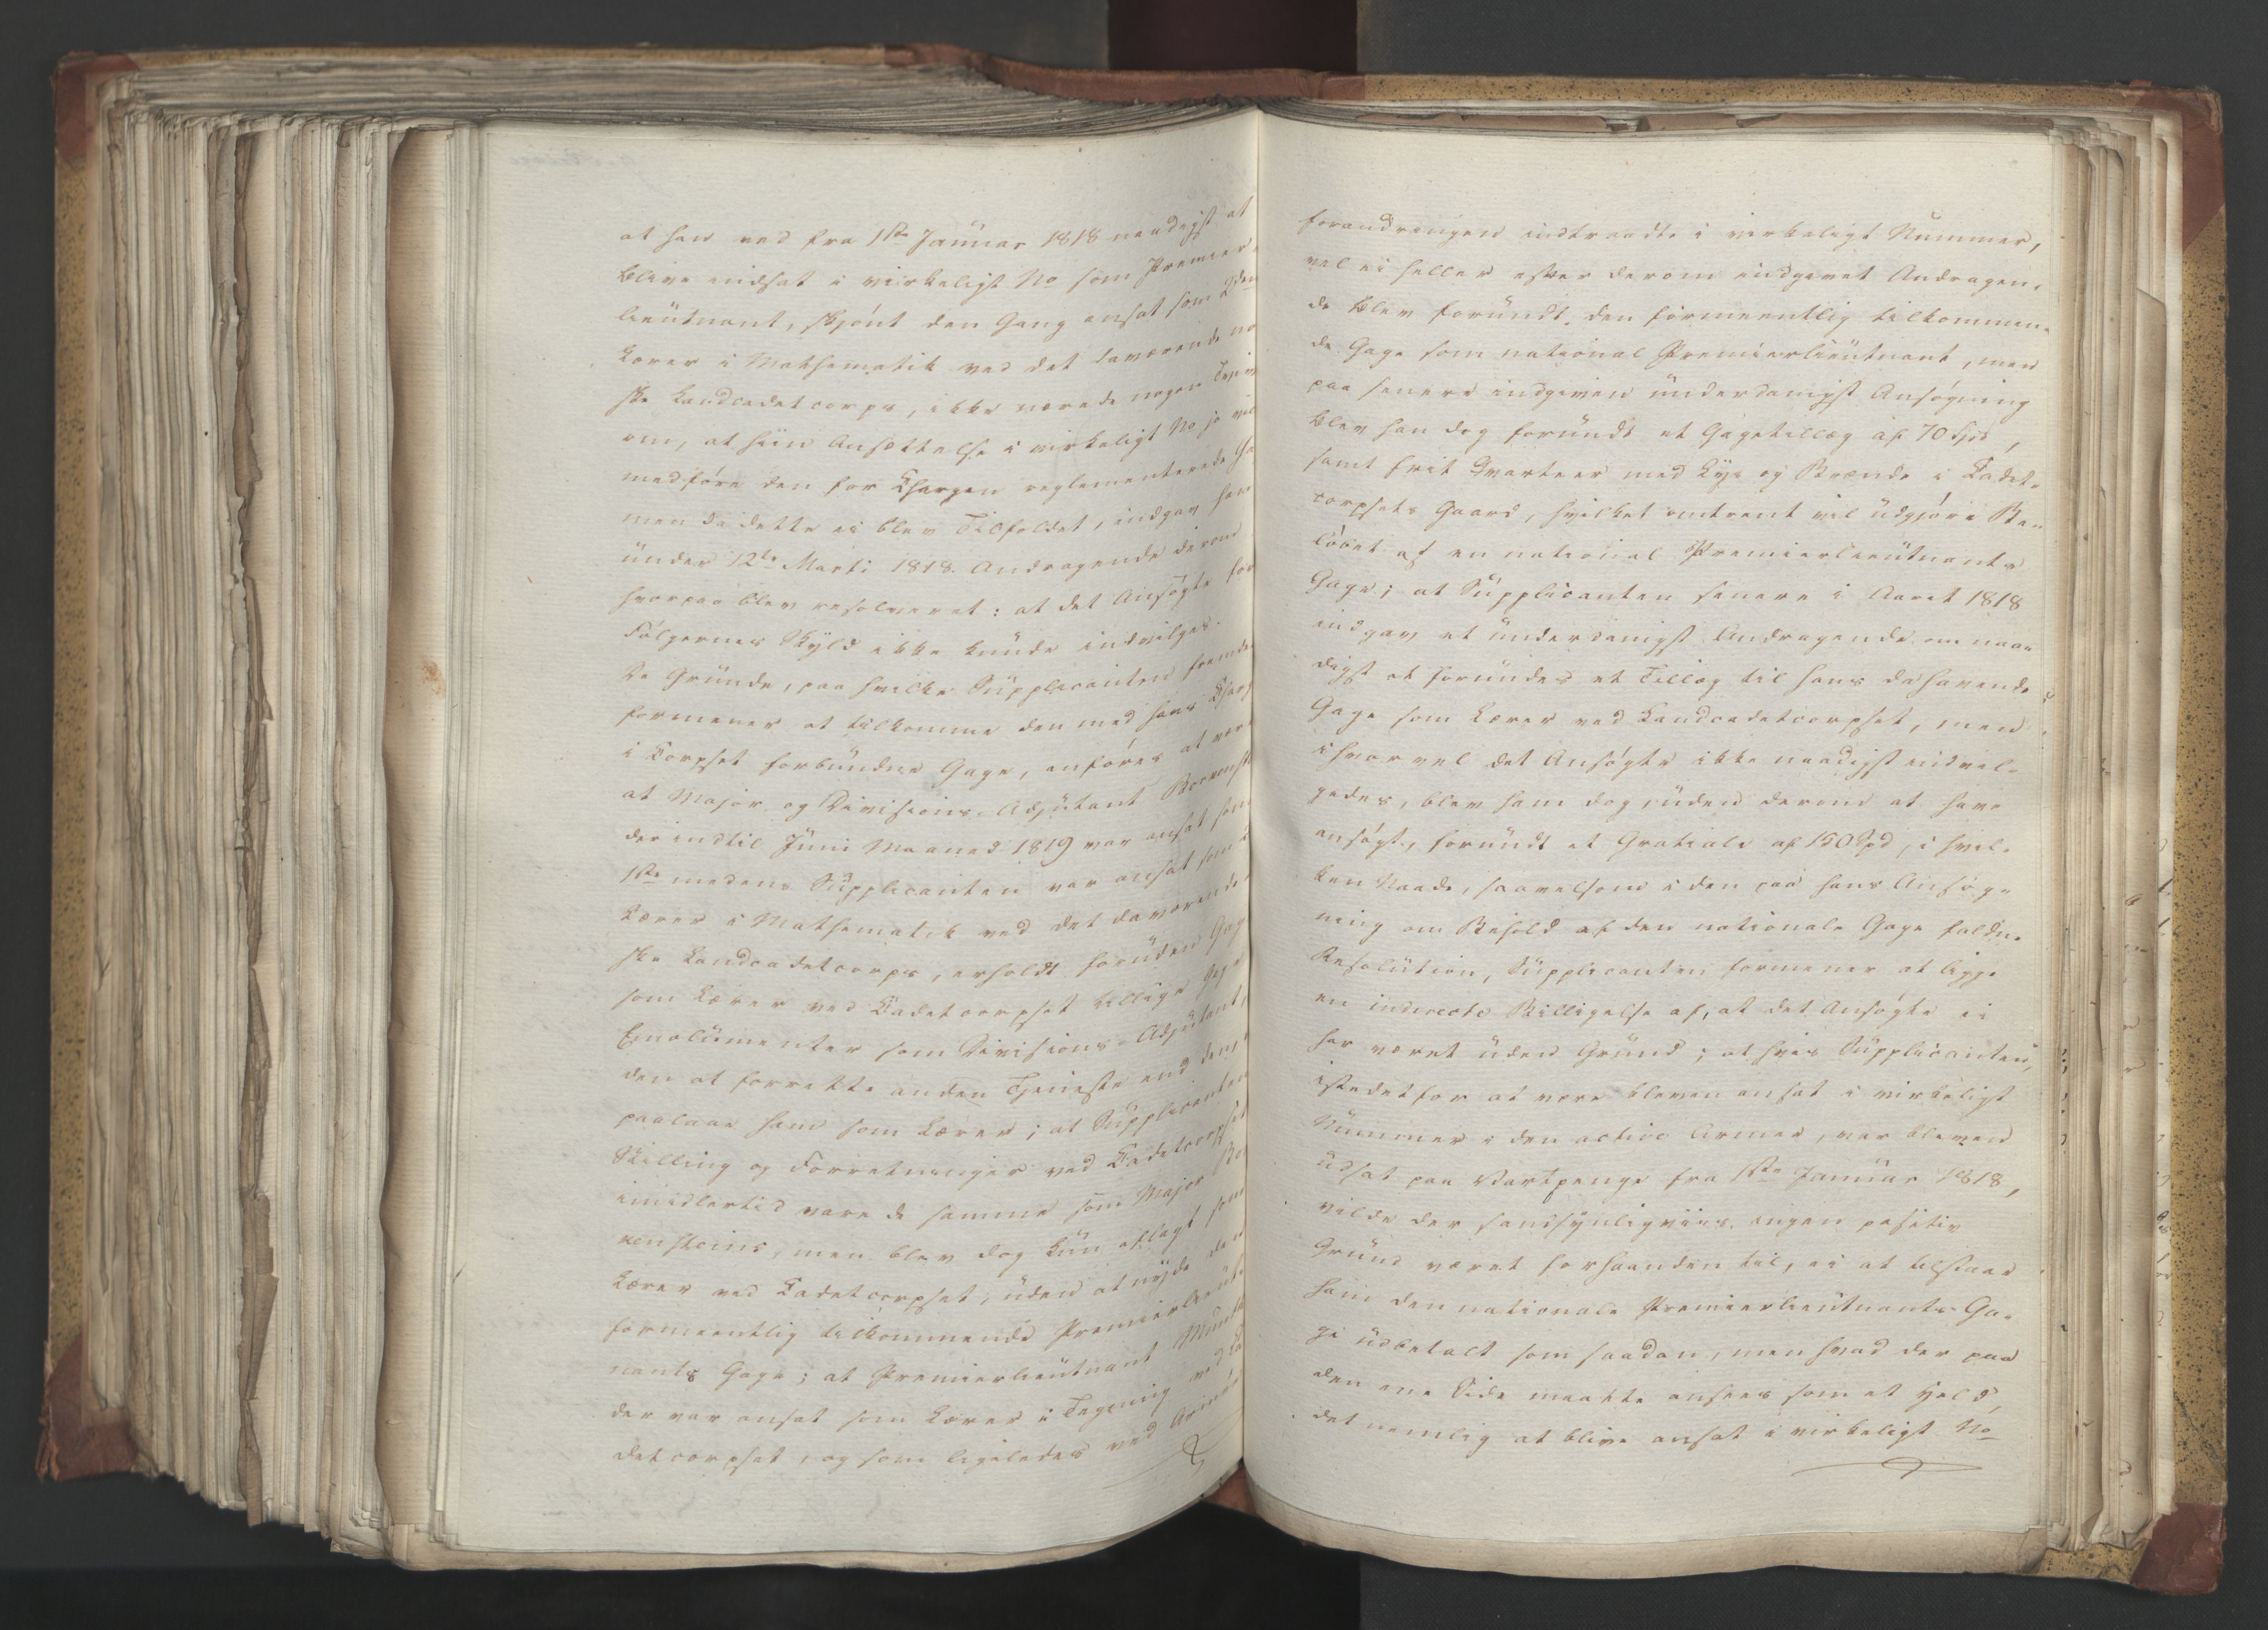 at han ved fra 1ste Januar 1818 naadigst at
blive indsat i virkeligt No som Premier-
lieutnant, skjönt den Gang ansat som 2den
Lærer i Mathematik ved det daværende no
ske Landcadetcorps, ikke nærede nogen Tvivl
om, at hiin Ansættelse i virkeligt No jo vil
medföre den for Chargen reglementerede Ga
men da dette ei blev Tilfældet, indgav han
under 12te Marti 1818. Andragende derom
hvorpaa blev resolveret: at det Ansögte for
Fölgernes Skyld ikke kunde indvilges.
De Grunde, paa hvilke Supplicanten fremde
formener at tilkomme den med hans Charg
i Corpset forbundne Gage, anföres at være
at Major og Divisions-Adjutant
der indtil Juni Maaned 1819 var ansat som
1ste medens Supplicanten var ansat som 2
Lærer i Mathematik ved det daværende
ske Landcadetcorps, erholdt foruden Gage
som Lærer ved Cadetcorpset tillige Gage
Emolumenter som Divisions-Adjutant,
den at forrette anden Tjeneste end den,
paalaae ham som Lærer; at Supplicanten
Stilling og Forretninger ved Cadetcorpset
imidlertid vare de samme som Major Bo
rensteins, men blev dog kun aflagt som
Lærer ved Cadetcorpset, uden at nyde den
formeentlig tilkommende Premierlieut-
nants Gage; at Premierlieutnant
der var ansat som Lærer i Tegning ved Ca
detcorpset, og som ligeledes ved Armee
forandringen indtraadte i virkeligt Nummer,
vel ei heller efter derom indgivet Andragen-
de blev forundt den formeentlig tilkommen-
de Gage som national Premierlieutnant, men
paa senere indgiven underdanigst Ansögning
blev han dog forundt et Gagetillæg af 70 Spd,
samt frit Qvarteer med Lys og Brænde i Cadet-
corpsets Gaard, hvilket omtrent vil udgjöre Be-
löbet af en national Premierlieutnants
Gage; at Supplicanten senere i Aaret 1818
indgav et underdanigst Andragende om naa-
digst at forundes et Tillæg til hans da havende
Gage som Lærer ved Landcadetcorpset, men
ihvorvel det Ansögte ikke naadigst indvil-
gedes, blev ham dog, uden derom at have
ansögt, forundt et Gratiale af 150 Spd, i hvil-
ken Naade, saavelsom i den paa hans Ansög-
ning om Behold af den nationale Gage faldne
Resolution, Supplicanten formener at ligge
en indirecte Billigelse af, at det Ansögte ei
har været uden Grund; at hvis Supplicanten,
istedetfor at være bleven ansat i virkeligt
Nummer i den active Armee, var bleven
udsat paa Vartpenge fra 1ste Januar 1818,
vilde der sandsynligviis ingen positiv
Grund været forhaanden til, ei at tilstaae
ham den nationale Premierlieutnants Ga-
ge udbetalt som saadan, men hvad der paa
den ene Side maatte ansees som et Held,
det nemlig at blive ansat i virkeligt No